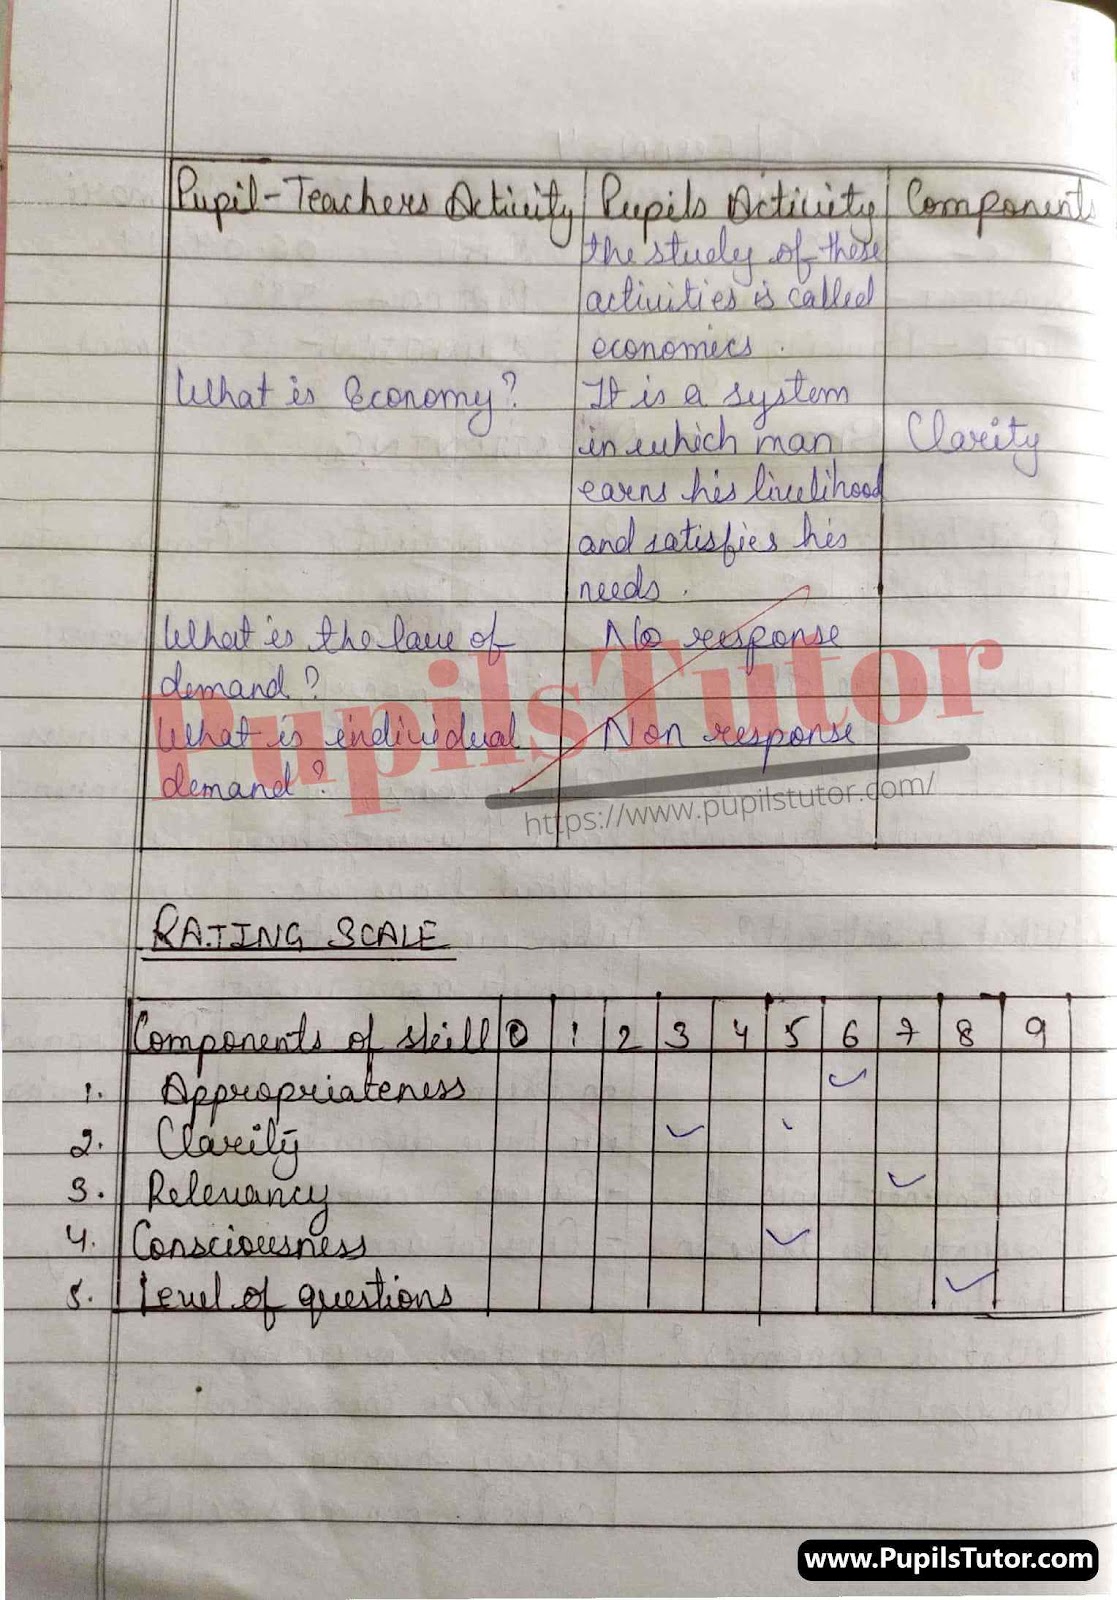 Pupil-Teachers Activity Pupils Activity Components
the study of these
activities is called
economics.
What is Economy? It is a system
in which man Clarity
earns his livelihood
and satisfies his
needs.
What is the law of No response
demand?
What is individual Non response
demand?
PupilsTutor
https://www.pupilstutor.com/
RATING SCALE
Components of skill 0 1 2 3 4 5 6 7 8 9
1. Appropriateness ✓
2. Clarity ✓
3. Relevancy ✓
4. Consciousness ✓
5. Level of questions ✓
www.PupilsTutor.com